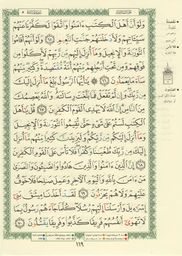 وَلَوْ أَنَّ أَهْلَ الْكِتَٰبِ ءَامَنُوا وَاتَّقَوْا لَكَفَّرْنَا عَنْهُمْ
سَيِّـَٔاتِهِمْ وَلَأَدْخَلْنَٰهُمْ جَنَّٰتِ النَّعِيمِ ٦٥ وَلَوْ أَنَّهُمْ أَقَامُوا
التَّوْرَىٰةَ وَالْإِنجِيلَ وَمَا أُنزِلَ إِلَيْهِم مِّن رَّبِّهِمْ لَأَكَلُوا مِن
فَوْقِهِمْ وَمِن تَحْتِ أَرْجُلِهِم مِّنْهُمْ أُمَّةٌ مُّقْتَصِدَةٌ وَكَثِيرٌ مِّنْهُمْ
سَآءَ مَا يَعْمَلُونَ ٦٦ يَٰٓأَيُّهَا الرَّسُولُ بَلِّغْ مَا أُنزِلَ إِلَيْكَ
مِن رَّبِّكَ وَإِن لَّمْ تَفْعَلْ فَمَا بَلَّغْتَ رِسَالَتَهُ وَاللَّهُ يَعْصِمُكَ
مِنَ النَّاسِ إِنَّ اللَّهَ لَا يَهْدِي الْقَوْمَ الْكَٰفِرِينَ ٦٧ قُلْ يَٰٓأَهْلَ
الْكِتَٰبِ لَسْتُمْ عَلَىٰ شَيْءٍ حَتَّىٰ تُقِيمُوا التَّوْرَىٰةَ وَالْإِنجِيلَ
وَمَا أُنزِلَ إِلَيْكُم مِّن رَّبِّكُمْ وَلَيَزِيدَنَّ كَثِيرًا مِّنْهُم مَّا أُنزِلَ إِلَيْكَ
مِن رَّبِّكَ طُغْيَٰنًا وَكُفْرًا فَلَا تَأْسَ عَلَى الْقَوْمِ الْكَٰفِرِينَ
٦٨ إِنَّ الَّذِينَ ءَامَنُوا وَالَّذِينَ هَادُوا وَالصَّٰبِـُٔونَ وَالنَّصَٰرَىٰ
مَنْ ءَامَنَ بِاللَّهِ وَالْيَوْمِ الْءَاخِرِ وَعَمِلَ صَٰلِحًا فَلَا خَوْفٌ
عَلَيْهِمْ وَلَا هُمْ يَحْزَنُونَ ٦٩ لَقَدْ أَخَذْنَا مِيثَٰقَ بَنِي
إِسْرَٰٓءِيلَ وَأَرْسَلْنَا إِلَيْهِمْ رُسُلًا كُلَّمَا جَآءَهُمْ رَسُولٌ بِمَا
لَا تَهْوَىٰ أَنفُسُهُمْ فَرِيقًا كَذَّبُوا وَفَرِيقًا يَقْتُلُونَ ٧٠
١١٩